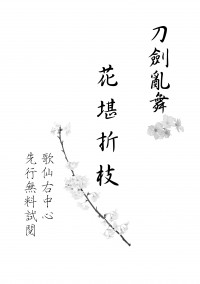 刀劍亂舞
花堪折枝
歌仙右中心
先行無料試閱